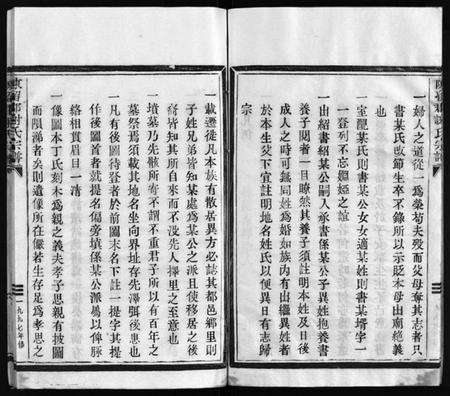 一婦人之道從一為榮苟夫歿而父母奪其志者只
書某氏改節生卒不錄所以示貶本母出廟絕義
也
一室配某氏則書某公女女適某姓則書某壻字一
一登列不忘姻婭之誼
一由紹書紹某公嗣入承書係某公子異姓抱養書
養子閱者一目瞭然其養子須註明本姓及日後
成人之時可無同姓為婚如族內有出繼異姓者
於本生父下宜註明地名姓氏以便異日有志歸
宗
一載遷徙凡本族有散居異方必誌其都邑鄉里則
子姓兄弟皆知某處為某公之派且使移居之後
裔皆知其所自來而不没先人擇里之至意也
一墳墓乃先骸所寄不謂不重君子所以有百年之
墓祭焉須載其地名坐向界址存先澤弭後患也
一凡有後圖待登者於前圖末名下註一提字其提
作後圖首者就提名偏旁填係某公派屬以俾脉
絡相貫眉目一清
一像圖本丁氏刻木為親之義夫孝子思親有披圖
而隕涕者矣則遺像所在儼若生存足為孝思之
陳留郡謝氏宗譜
一九九七年修